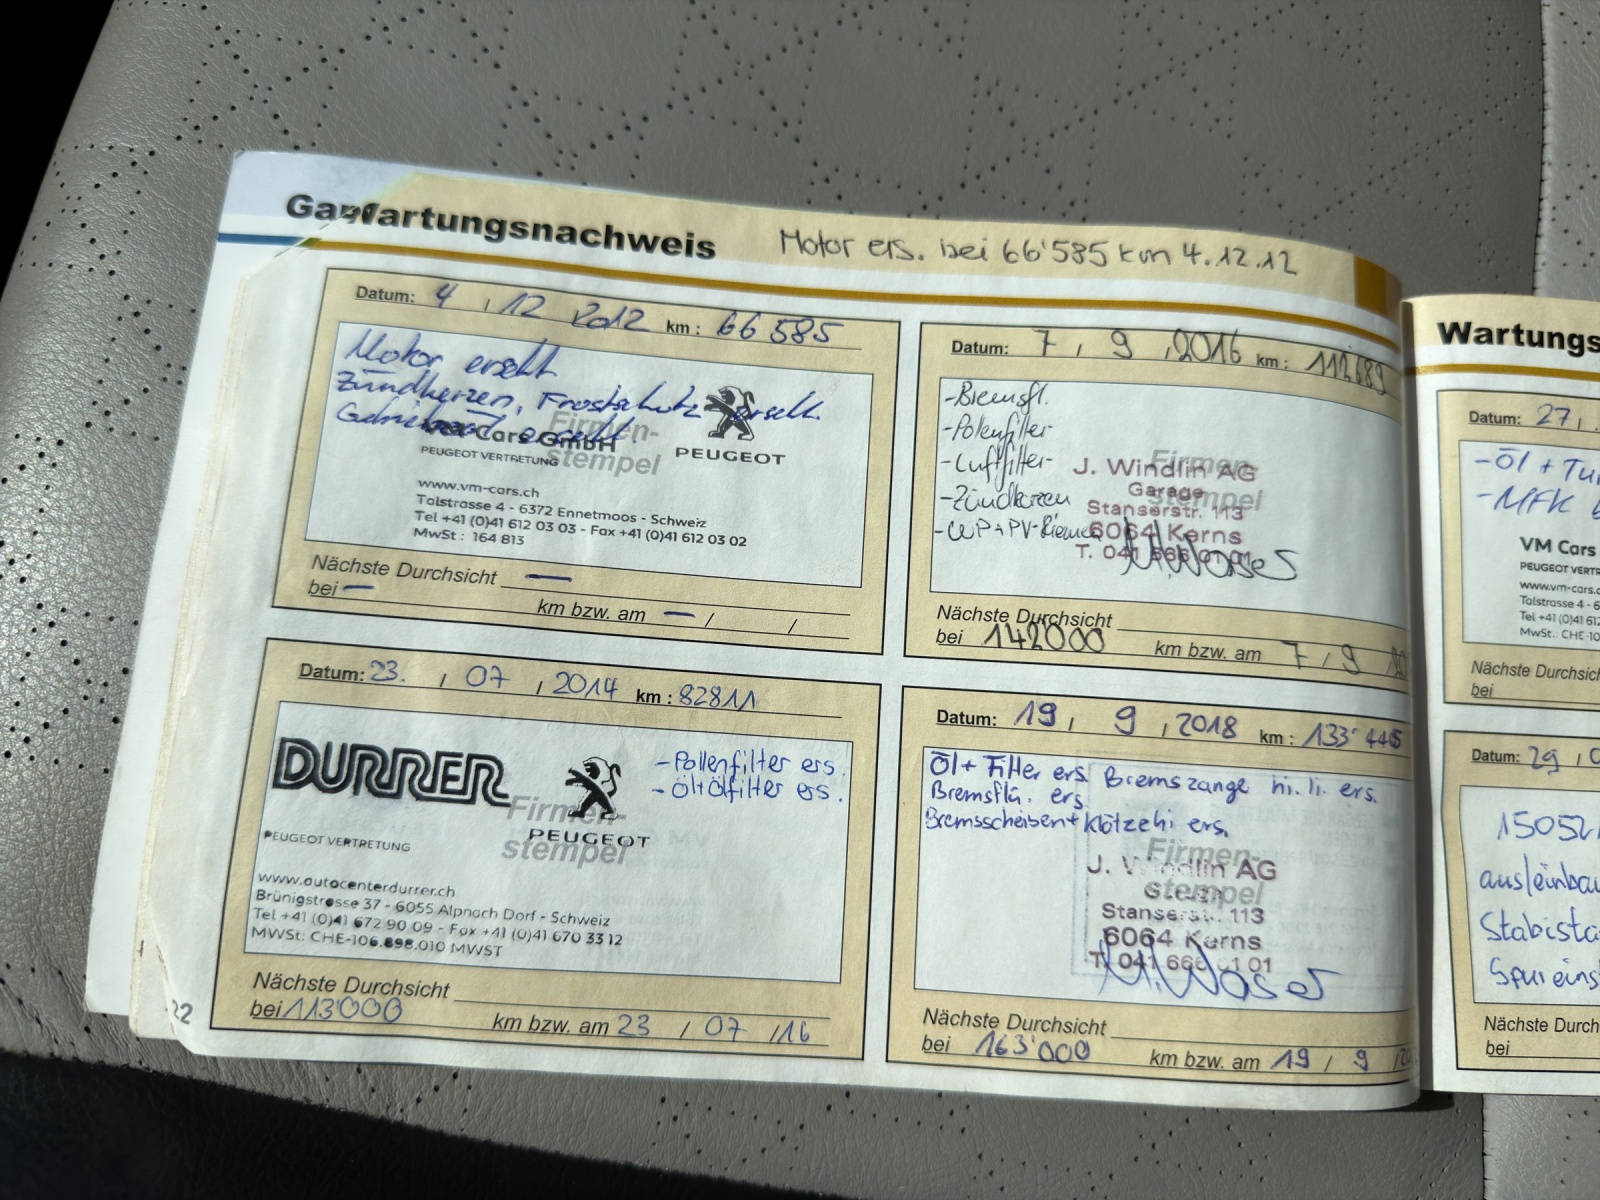 Ga Wartungsnachweis Motor ers. bei 66'585 km 4.12.12
Datum: 4 , 12 2012 km : 66 585
Motor ersetzt
Zündkerzen, Frostschutz ersetzt.
Firmen-
stempel
Cars GmbH
PEUGEOT VERTRETUNG
PEUGEOT
www.vm-cars.ch
Talstrasse 4 - 6372 Ennetmoos - Schweiz
Tel +41 (0)41 612 03 03 - Fax +41 (0)41 612 03 02
MwSt : 164 813
Nächste Durchsicht —
bei — km bzw. am — / /
Datum: 23. , 07 , 2014 km : 82811
DURRER
- Pollenfilter ers.
- Öl+Ölfilter ers.
Firmen-
stempel
PEUGEOT
PEUGEOT VERTRETUNG
www.autocenterdurrer.ch
Brünigstrasse 37 - 6055 Alpnach Dorf - Schweiz
Tel +41 (0)41 672 90 09 - Fax +41 (0)41 670 33 12
MWSt: CHE-106.898.010 MWST
Nächste Durchsicht
bei 113'000 km bzw. am 23 / 07 / 16
22
Datum: 7 , 9 , 2016 km : 112689
- Bremsfl.
- Polenfilter
- Luftfilter
- Zündkerzen
- WP+PV-Riemen
Firmen-
stempel
J. Windlin AG
Garage
Stanserstr. 113
6064 Kerns
T. 041 666 01 01
Nächste Durchsicht
bei 142000 km bzw. am 7 / 9
Datum: 19 , 9 , 2018 km : 133'445
Öl + Filter ers. Bremszange hi. li. ers.
Bremsflü. ers.
Bremsscheiben + Klötze hi ers.
Firmen-
stempel
J. Windlin AG
Stanserstr. 113
6064 Kerns
T. 041 666 01 01
Nächste Durchsicht
bei 163'000 km bzw. am 19 / 9
Wartungs
Datum: 27
- Öl +
- MFK
VM Cars
PEUGEOT VERTR
www.vm-cars.c
Talstrasse 4 - 6
Tel +41 (0)41 6
MwSt.: CHE-10
Nächste Durchs
bei
Datum: 29
15052
aus/einbau
Stabista
Spureins
Nächste Durch
bei